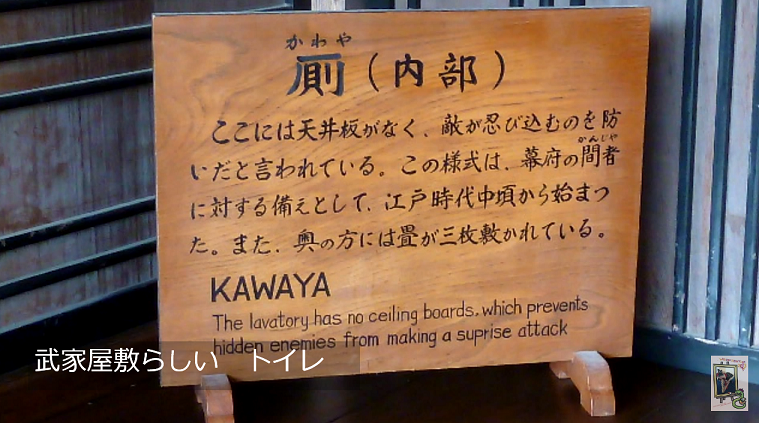 かわや
厠（内部）
ここには天井板がなく、敵が忍び込むのを防
かんじゃ
いだと言われている。この様式は、幕府の間者
に対する備えとして、江戸時代中頃から始まっ
た。また、奥の方には畳が三枚敷かれている。
KAWAYA
The lavatory has no ceiling boards, which prevents
hidden enemies from making a suprise attack
武家屋敷らしい　トイレ